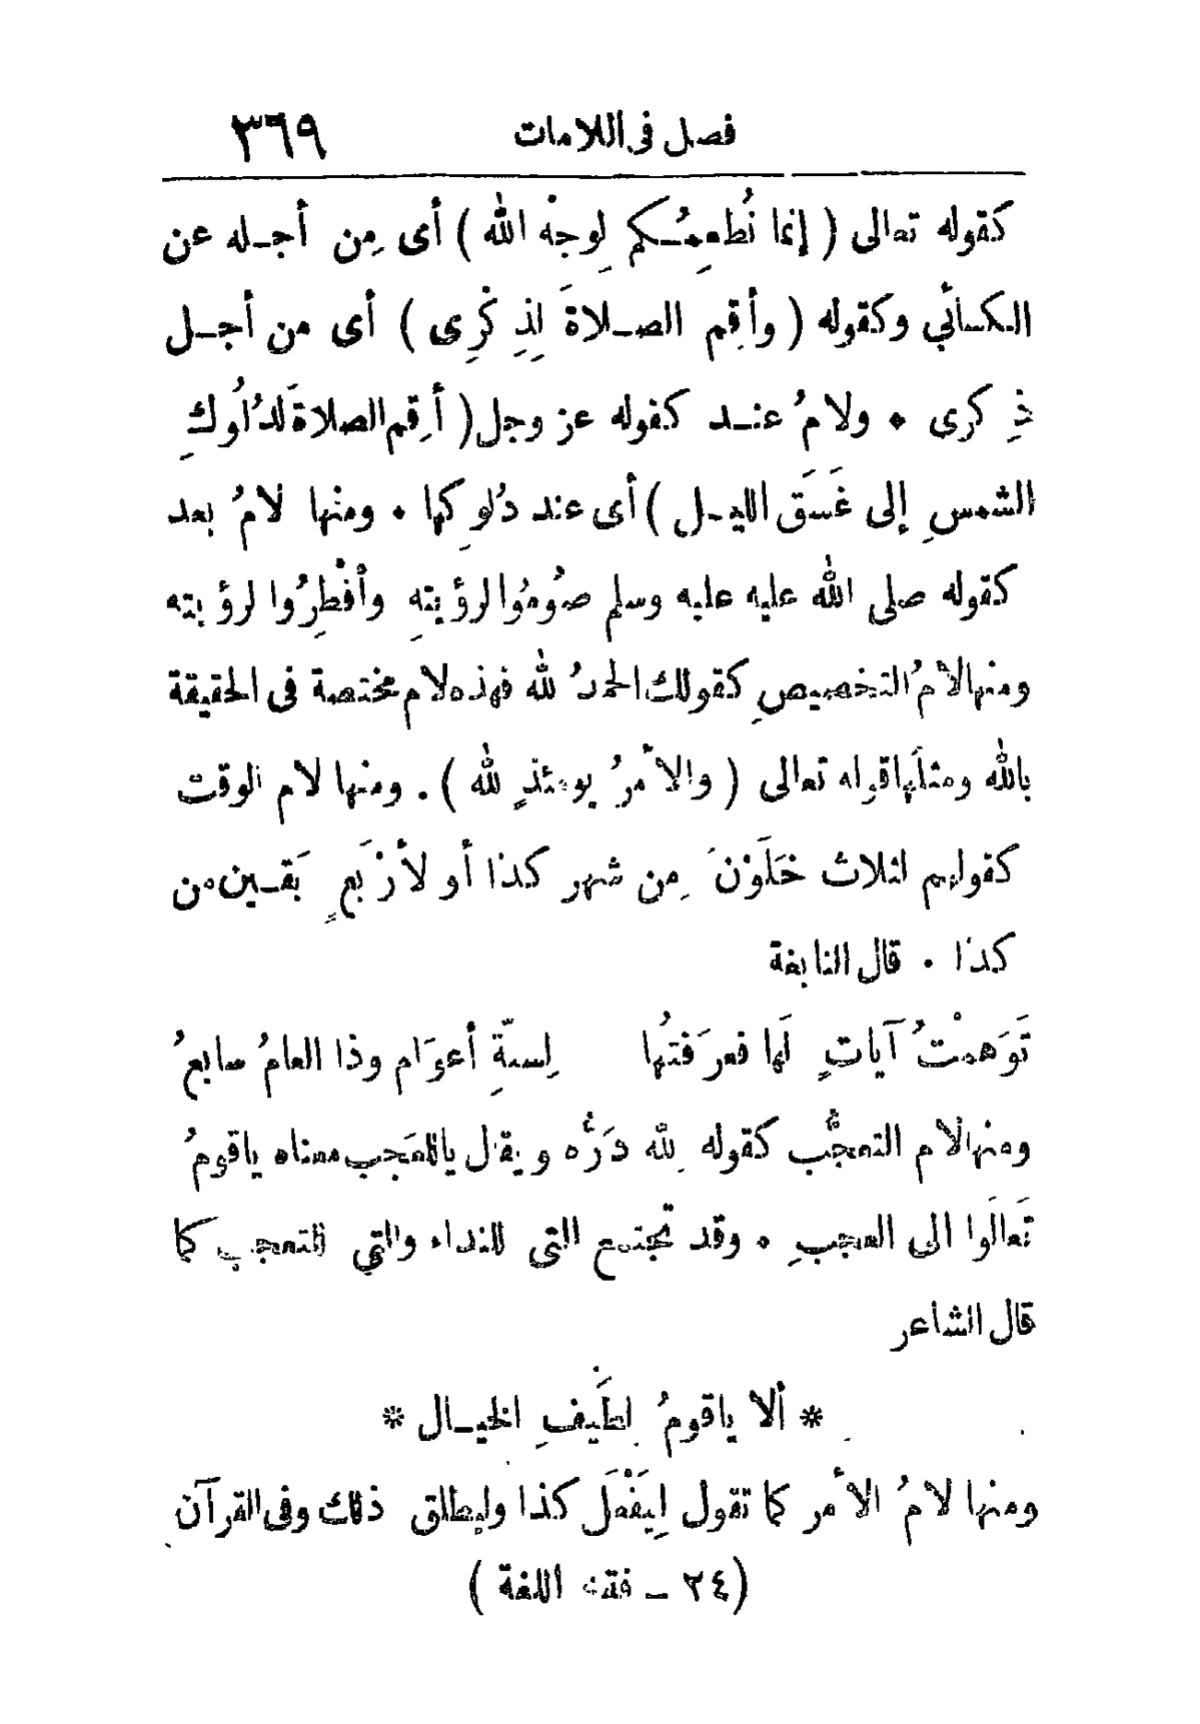 فصل فى اللامات ٣٦٩
كقوله تعالى ( إنما نُطعمُـكم لِوجهْ الله ) أى مِن أجـله عن
الكسائي وكقوله ( وأقِم الصـلاةَ لِذِكْرِى ) أى من أجـل
ذِكرى • ولامُ عنـد كقوله عز وجل ( أقِم الصلاةَ لدُلُوكِ
الشمسِ إلى غَسَق الليـل ) أى عند دُلوكِها • ومنها لامُ بعد
كقوله صلى الله عليه عليه وسلم صُومُوا لرؤيتهِ وأفْطِرُوا لرؤيته
ومنها لامُ التخصيصِ كقولك الحمدُ لله فهذه لام مختصة فى الحقيقة
بالله ومثلَها قوله تعالى ( والأمرُ يومئذٍ لله ) . ومنها لام الوقت
كقولهم لثلاث خَلَوْنَ مِن شهر كذا أو لأرْبَعٍ بَقـين من
كذا . قال النابغة
تَوَهمْتُ آيات ٍ لَها فعرَفتُها لِستّةِ أعوَام وذا العامُ سابعُ
ومنها لام التعجُّب كقوله لِله دَرُّه ويقال ياللعَجب معناه ياقومُ
تَعالَوا الى العجبِ • وقد تجتمع التى للنداء والتي للتعجب كما
قال الشاعر
* ألا ياقومُ لِطَيفِ الخيـال *
ومنها لامُ الأمر كما تقول لِيَفْعَلَ كذا وليطلق ذلك وفى القرآن
(٢٤ — فقه اللغة )